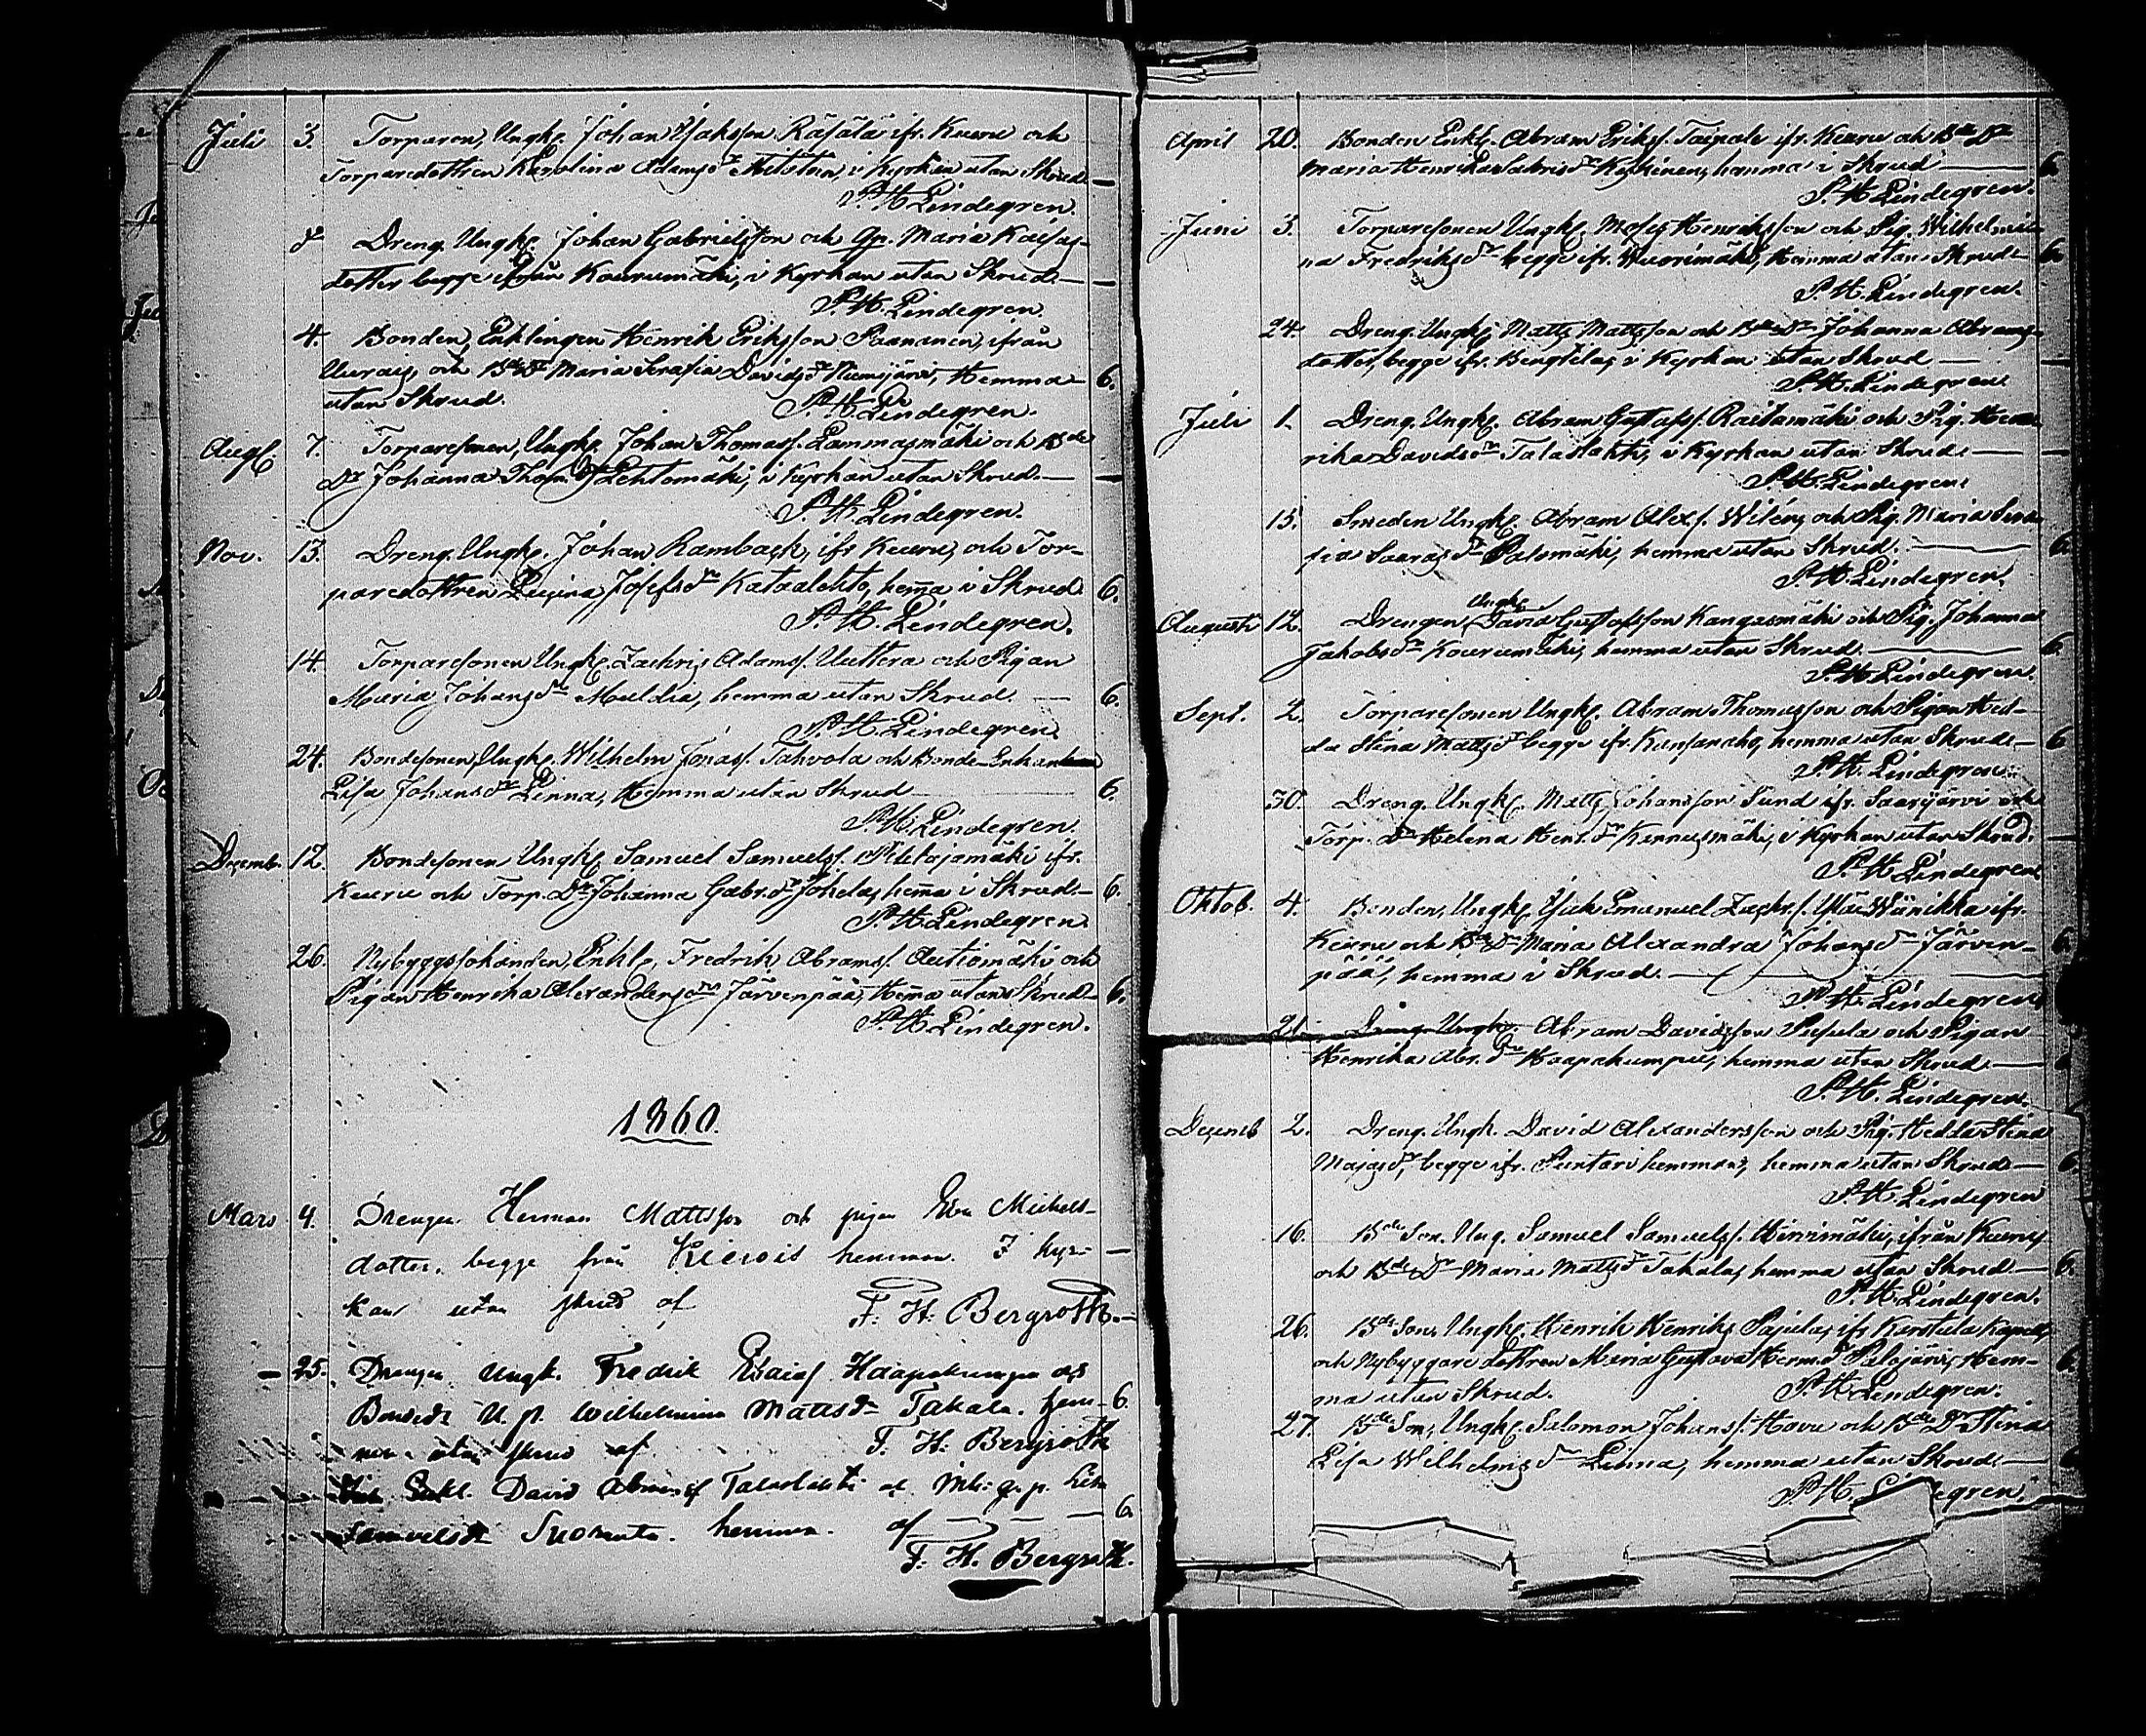 Juli 3. Torparen, Ungk. Johan Isaksson Räsälä ifr. Keuru och
Torparedottren Karolina Adamsdr i Kyrkan utan Skrud. —
P. H. Lindegren.
d Dreng. Ungk. Johan Gabrielsson och Qp. Maria Kaisas-
dotter begge ifrån Kourumäki, i Kyrkan utan Skrud. —
P. H. Lindegren.
4. Bonden, Enklingen Henrik Eriksson Paananen, ifrån
och Bde Dr Maria Serafia Davidsdr Niemijärvi, Hemma 6.
utan Skrud. P. H. Lindegren.
Augs. 7. Torparesonen, Ungk. Johan Thomass. Lammasmäki och Bde
Dr Johanna Thom. dr Lehtomäki, i Kyrkan utan Skrud. —
P. H. Lindegren.
Nov. 13. Dreng. Ungk. Johan Rambask, ifr Keuru, och Tor-
paredottren Josefsdr Kataalehto, hem̄a i Skrud 6.
P. H. Lindegren.
14. Torparesonen Ungk. Zachris Adams. Uuttera och Pigan
Maria Johansdr Muldia, hemma utan Skrud. — 6.
P. H. Lindegren.
24. Bondesonen, Ungk. Wilhelm Jonas. Tahvola och Bonde-Enkan
Lisa Johansdr Linna, Hemma utan Skrud 6.
P. H. Lindegren.
Decemb. 12. Bondesonen Ungk. Samuel Samuels. ifr.
Keuru och Torp. Dr Johanna Gabr. dr Jokela, hem̄a i Skrud. — 6.
P. H. Lindegren.
26. Nybyggs Enkl. Fredrik Abrams. Autiomäki och
Pigan Henrika Alexandersdr Järvenpää, Hem̄a utan Skrud 6.
P. H. Lindegren.
1860.
Mars 4. Drengen Herman Mattsson och pigan Eva Michels-
dotter, begge från hemman. I kyr- —
kan utan skrud af F. H. Bergroth. —
— 25. Drengen Ungk. Fredrik Esaias Haapakumpu och
Bonded: U. p. Wilhelmina Mattsdr Takala. hem- 6
ma utan skrud af F. H. Bergroth
Enkl. David Abramss Talaslahti Lisa
Samuelsdr Suoranta. hemma. af — — — 6
F. H. Bergroth.
April 20. Bonden Enkl. Abram Eriks. Taipale ifr. Keuru och Bde Dr
Maria Henrika hemma i Skrud — 6.
P. H. Lindegren.
Juni 3. Torparesonen Ungk. Moses Henriksson och Pig. Wilhelmi-
na Fredriksdr begge ifr. Wuorimäki, Hemma utan Skrud 6.
P. H. Lindegren.
24. Dreng. Ungk. Matts Mattsson och Bde Dr Johanna Abrams-
dotter, begge ifr. Bengtilä, i Kyrkan utan Skrud —
P. H. Lindegren.
Juli 1. Dreng. Ungk. Abram Gustafs. Raitamäki och Pig. Hen-
rika Davidsdr Talaslahti, i Kyrkan utan Skrud —
P. H. Lindegren.
15. Smeden Ungk. Abram Alex. s. Wilén, och Pig. Maria Sera-
fia Saarasdr Palomäki, hemma utan Skrud. — 6.
P. H. Lindegren.
Augusti 12. Drengen Ungk. David Gustafsson Kangasmäki och Pig. Johanna
Jakobsdr Kourumäki, hemma utan Skrud. — 6
P. H. Lindegren.
Sept. 2. Torparesonen Ungk. Abram Thomasson och Pigan Hed-
da Stina Mattsdr begge ifr. Kansanaho, hemma utan Skrud 6
P. H. Lindegren.
30. Dreng. Ungk. Matts Johansson Sund ifr. Saarijärvi och
Torp. Dr Helena Henr. dr Kennusmäki, i Kyrkan utan Skrud. —
P. H. Lindegren
Oktob. 4. Bonden, Ungk. Isak Emanuel Zachr. s. Wiinikka ifr.
Keuru och Bde Dr Maria Alexandra Johansdr Järven- 6.
pää, hemma i Skrud. —
P. H. Lindegren
21. Dreng. Ungk. Abram Davidsson och Pigan
Henrika Abr. dr Haapakumpu, hemma utan Skrud. —
P. H. Lindegren.
Decemb 2. Dreng. Ungk. David Alexandersson och Pig. Hedda Stina
Majasdr, begge ifr. Puntari hemman, hemma utan Skrud — 6.
P. H. Lindegren
16. Bde Son. Ung. Samuel Samuels. Hirvimäki, ifrån Keuru
och Bde Dr Maria Mattsdr Takala, hemma utan Skrud — 6.
P. H. Lindegren.
26. Bde Son, Ungk. Henrik Henriks. Pajula, ifr Karstula Kapell
och Nybyggare dottren Maria Gustava Herm. dr Palojärvi, Hem- 6
ma utan Skrud. P. H. Lindegren.
27. Bde Son, Ungk. Salomon Johans. Hovu och Bde Dr Stina
Lisa Wilhelmsdr Linna, hemma utan Skrud —
P. H. Lindegren.